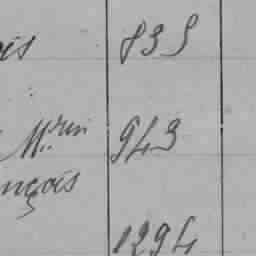 ois 835
M.rin 943
nçois
1294